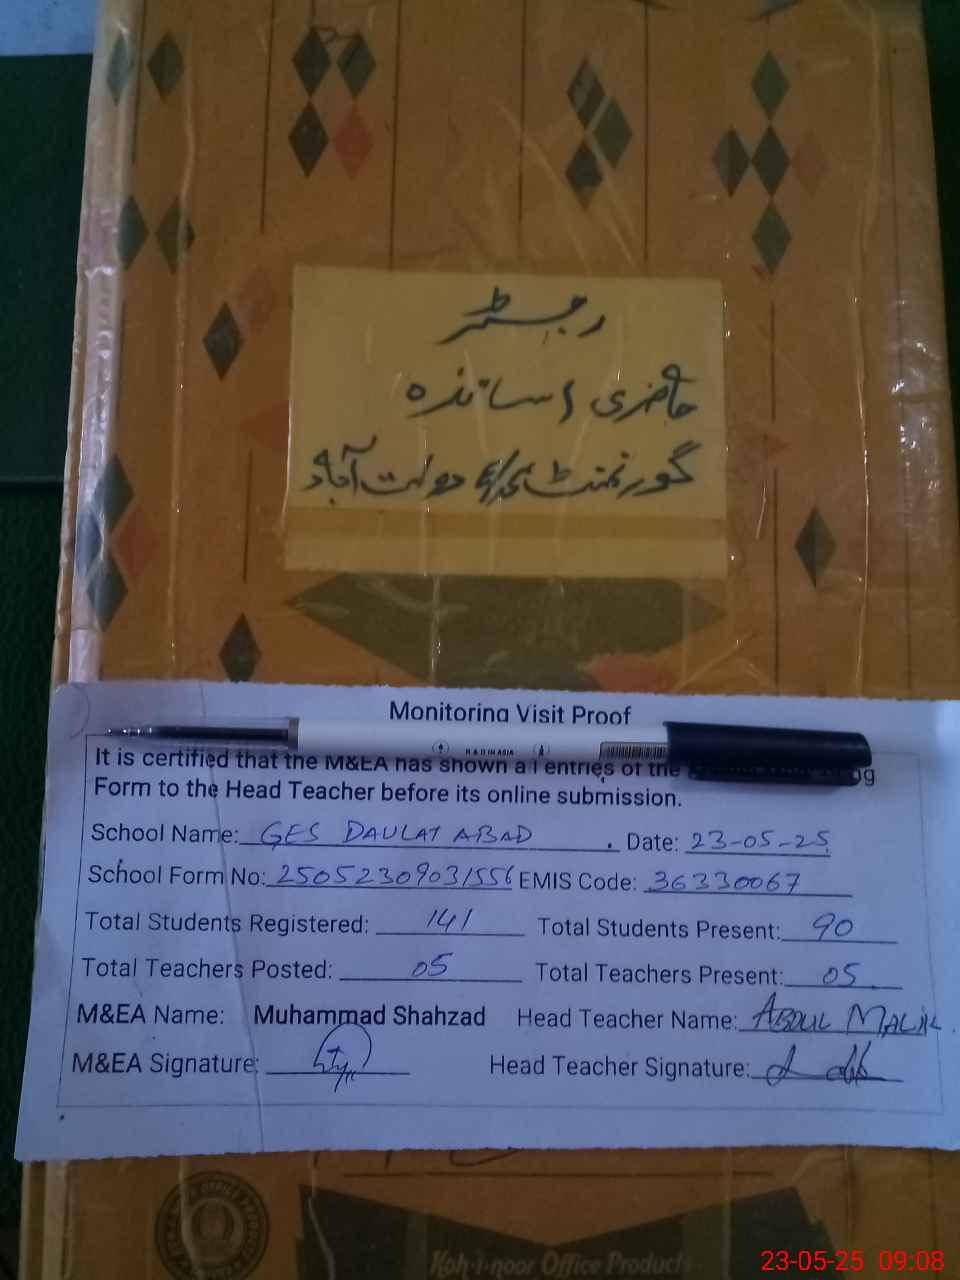 رجسٹر
حاضری اساتذہ
گورنمنٹ دولت آباد
Monitoring Visit Proof
R & D IN ASIA
It is certified that the M&EA has shown all entries of the
Form to the Head Teacher before its online submission.
School Name: GES DAULAT ABAD . Date: 23-05-25
School Form No: 25052309031556 EMIS Code: 36330067
Total Students Registered: 141 Total Students Present: 90
Total Teachers Posted: 05 Total Teachers Present: 05
M&EA Name: Muhammad Shahzad Head Teacher Name: ABDUL MALIK
M&EA Signature: Head Teacher Signature:
Koh-i-noor Office Products
23-05-25 09:08